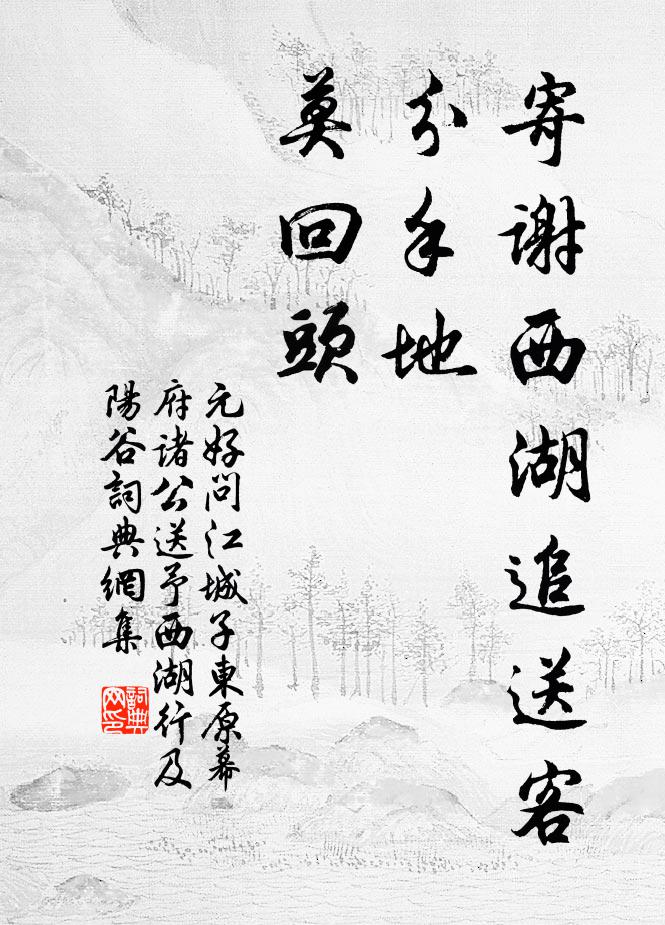 寄謝西湖追送客
分手地
莫回頭
元好問江城子東原幕
府諸公送予西湖行及
陽谷詞典網集
詞典
网印